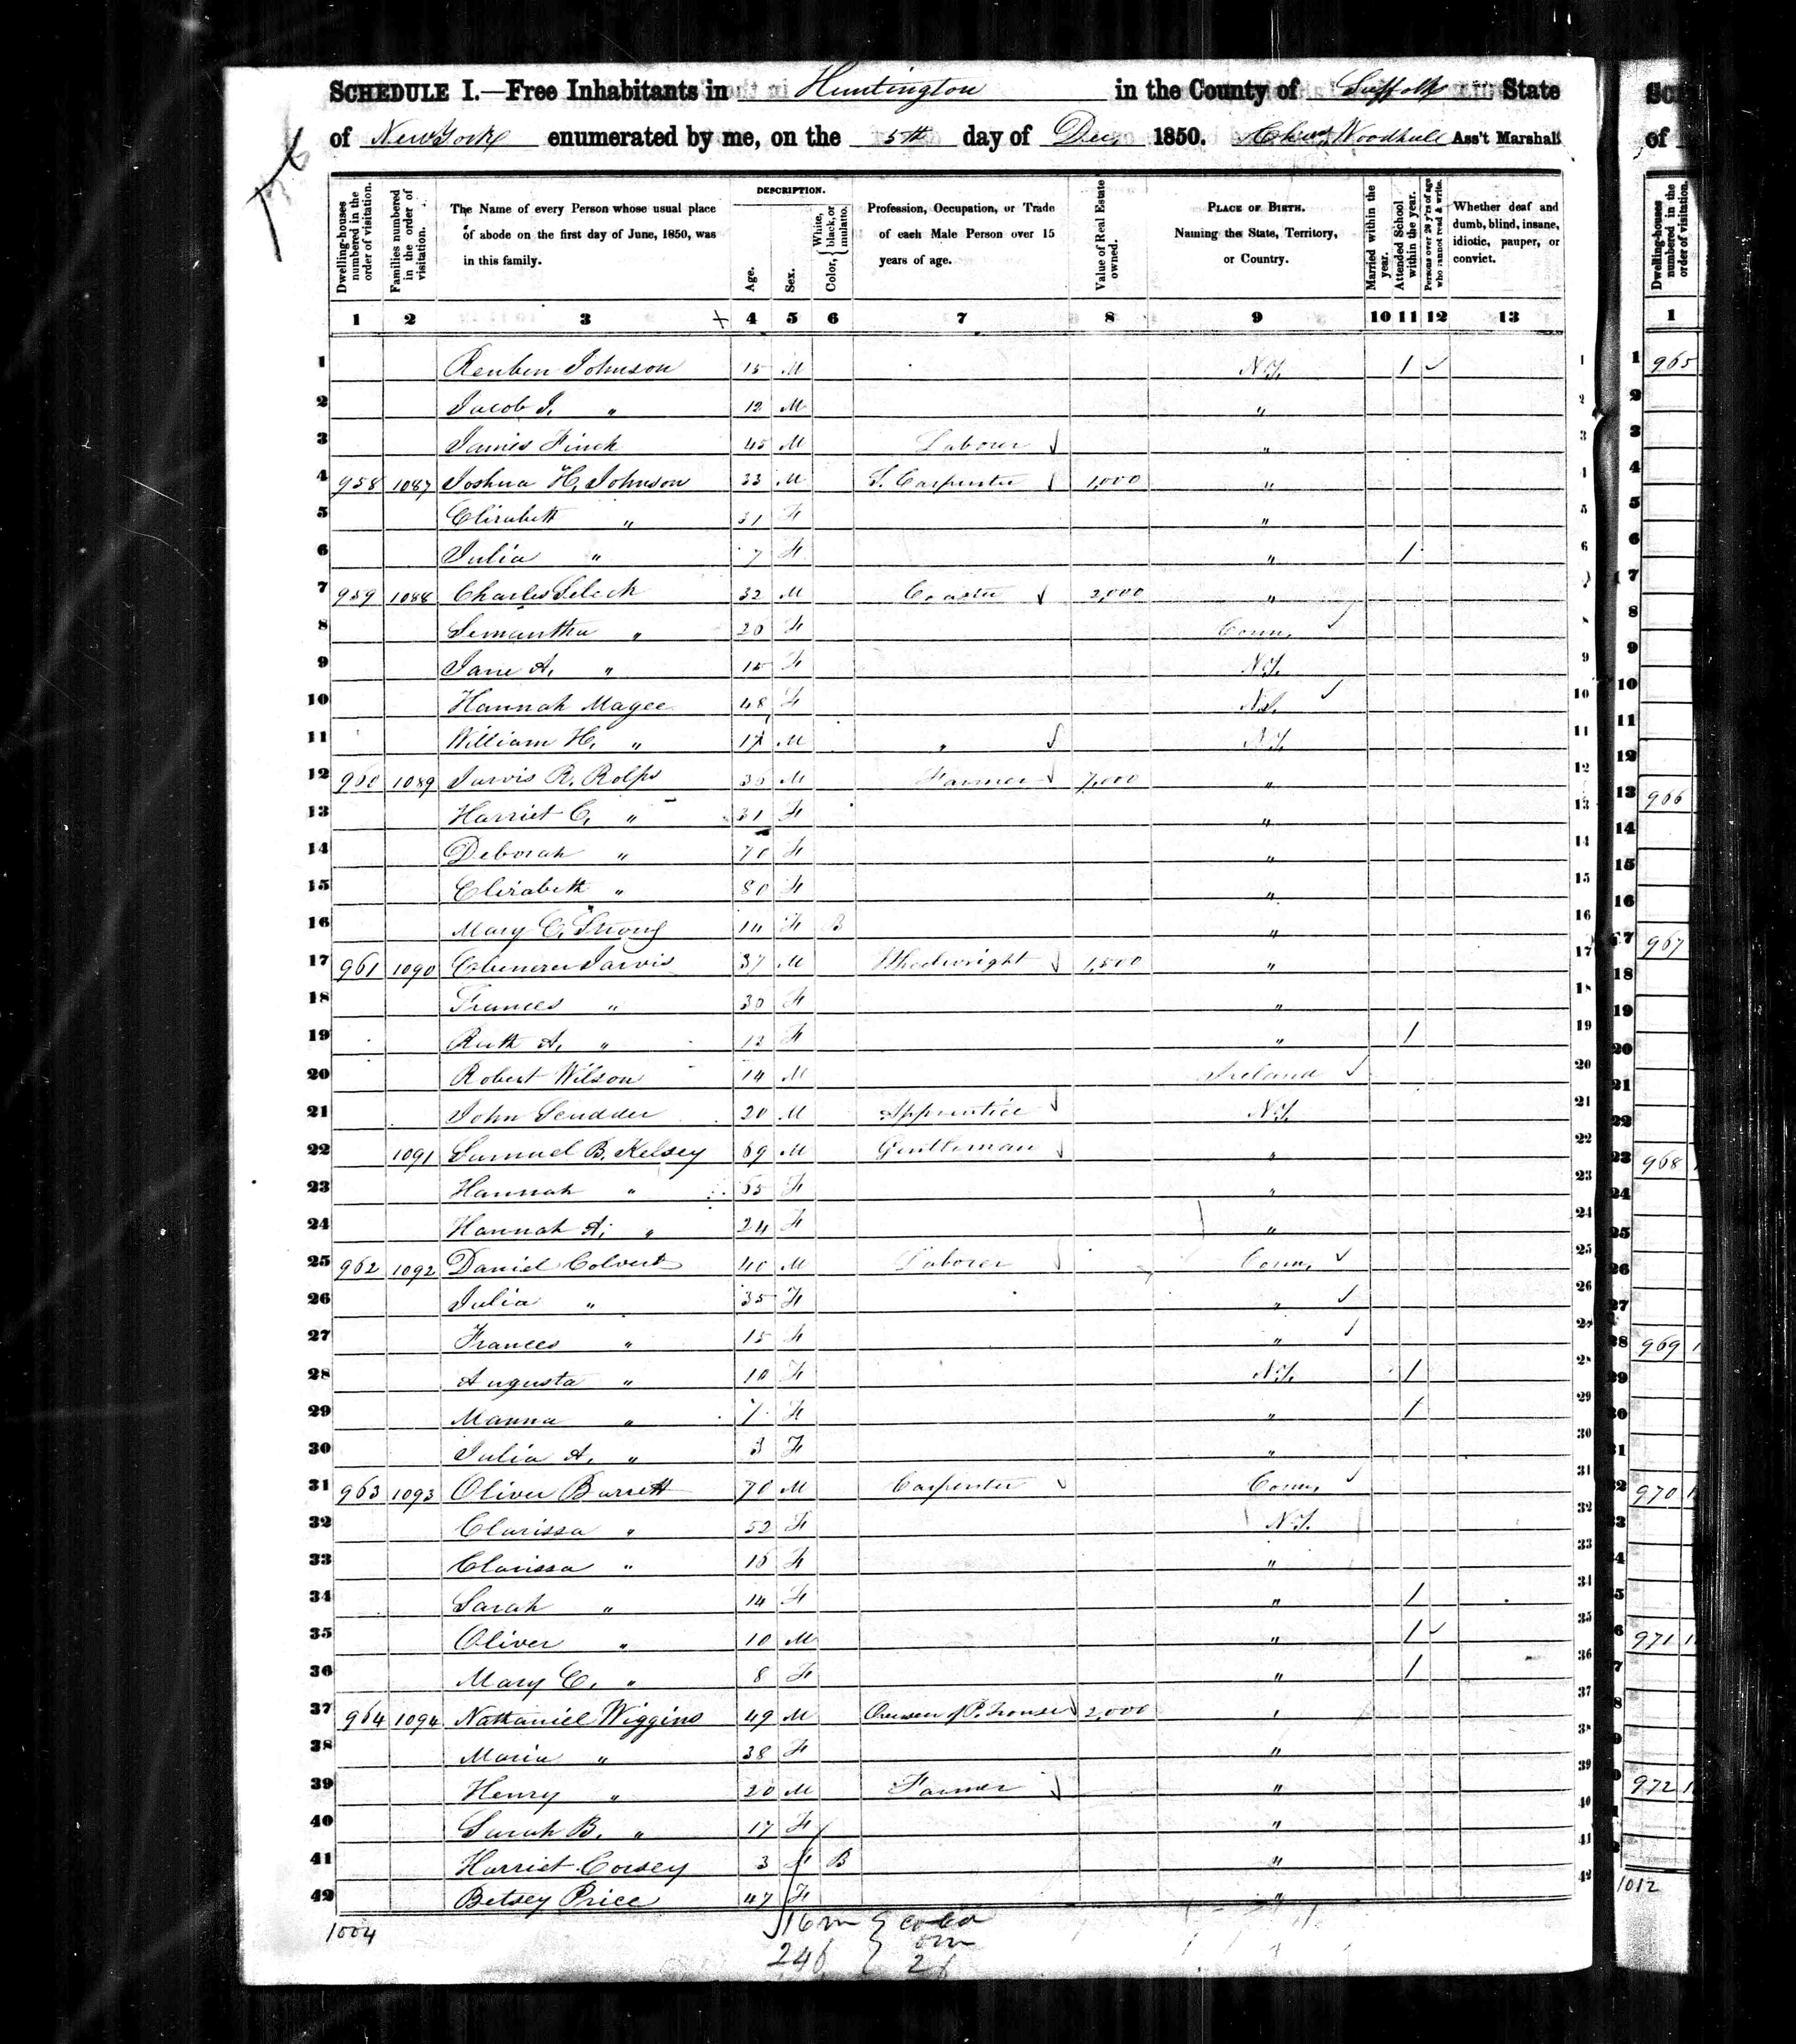 SCHEDULE I.—Free Inhabitants in Huntington in the County of Suffolk State
of New York enumerated by me, on the 5th day of Dec. 1850. Woodhull Ass't Marshal.
Dwelling-houses numbered in the order of visitation.
Families numbered in the order of visitation.
The Name of every Person whose usual place of abode on the first day of June, 1850, was in this family.
DESCRIPTION.
Age.
Sex.
Color, { White, black, or mulatto.
Profession, Occupation, or Trade of each Male Person over 15 years of age.
Value of Real Estate owned.
PLACE OF BIRTH. Naming the State, Territory, or Country.
Married within the year.
Attended School within the year.
Persons over 20 y'rs of age who cannot read & write.
Whether deaf and dumb, blind, insane, idiotic, pauper, or convict.
1 2 3 4 5 6 7 8 9 10 11 12 13
1 Reuben Johnson 15 M N.Y. 1 ✓
2 Jacob J. " 12 M "
3 James Finch 45 M Laborer "
4 958 1087 Joshua H. Johnson 33 M S. Carpenter 1,000 "
5 Elizabeth " 31 F "
6 Julia " 7 F " 1
7 959 1088 Charles Selech 32 M Coaster 2,000 "
8 Semantha " 20 F Conn. ✓
9 Jane A. " 15 F N.Y.
10 Hannah Magee 48 F N.J. ✓
11 William H. " 17 M " N.Y.
12 960 1089 Jarvis R. Rolph M Farmer 7,000 "
13 Harriet C. " 31 F "
14 Deborah " 70 F "
15 Elizabeth " 80 F "
16 Mary C. Strong 14 F B "
17 961 1090 Ebenezer Jarvis 37 M Wheelwright 1,500 "
18 Frances " 30 F "
19 Ruth A. " 13 F " 1
20 Robert Wilson 14 M Ireland ✓
21 John Scudder 20 M Apprentice N.Y.
22 1091 Samuel B. Kelsey 69 M Gentleman "
23 Hannah " 65 F "
24 Hannah A. " 24 F "
25 962 1092 Daniel Colvert 40 M Laborer Conn. ✓
26 Julia " 35 F " ✓
27 Frances " 15 F " ✓
28 Augusta " 10 F N.Y. 1
29 Manna " 7 F " 1
30 Julia A. " 3 F "
31 963 1093 Oliver Burrett 70 M Carpenter Conn. ✓
32 Clarissa " 52 F N.Y.
33 Clarissa " 16 F "
34 Sarah " 14 F " 1
35 Oliver " 10 M " 1 ✓
36 Mary E. " 8 F " 1
37 964 1094 Nathaniel Wiggins 49 M Overseer of P. house 2,000 "
38 Maria " 38 F "
39 Henry " 20 M Farmer "
40 Sarah B. " 17 F "
41 Harriet Corsey 3 F B "
42 Betsey Price 47 F "
1004
16 m
24 f
2 f
1
965
966
967
968
969
970
971
972
1012